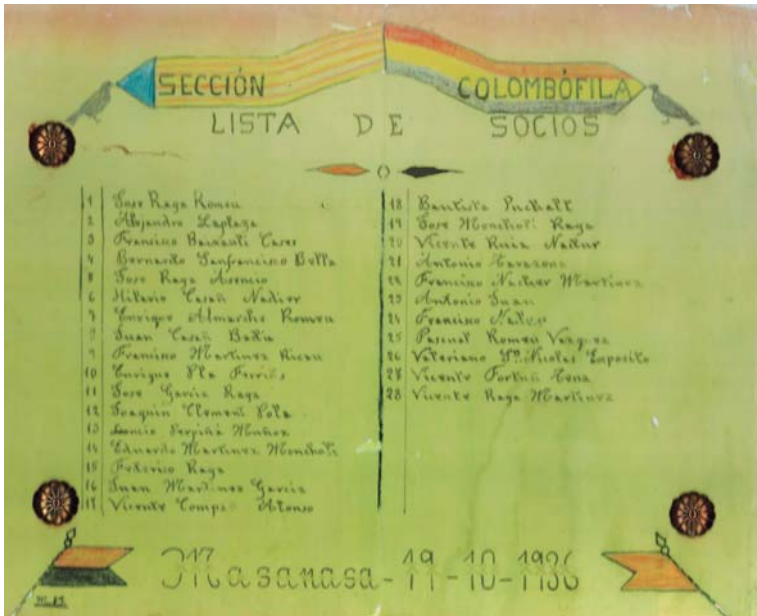 SECCIÓN COLOMBÓFILA
LISTA DE SOCIOS
1 Jose Raga Romeu
2 Alejandro Laplaza
3 Francisco Baixauli Cases
4 Bernardo Sanfrancisco Bella
5 Jose Raga Asencio
6 Hilario Casañ Nadier
7 Enrique Almerche Romeu
8 Juan Casañ
9 Francisco Martinez Ricau
10 Enrique Pla Ferrús
11 Jose Garcia Raga
12 Joaquin Climent Sola
13 Muñoz
14 Eduardo Martinez Moncholi
15 Federico Raga
16 Juan Martinez Garcia
17 Vicente Alonso
18 Bautista Puchalt
19 Jose Moncholi Raga
20 Vicente Ruiz Nacher
21 Antonio Tarazona
22 Francisco Nacher Martinez
23 Antonio Juan
24 Francisco Nacher
25 Pascual Romeu Vazquez
26 Valeriano Sn. Nicolas Esposito
27 Vicente Fortuñ
28 Vicente Raga Martinez
Masanasa-19-10-1936